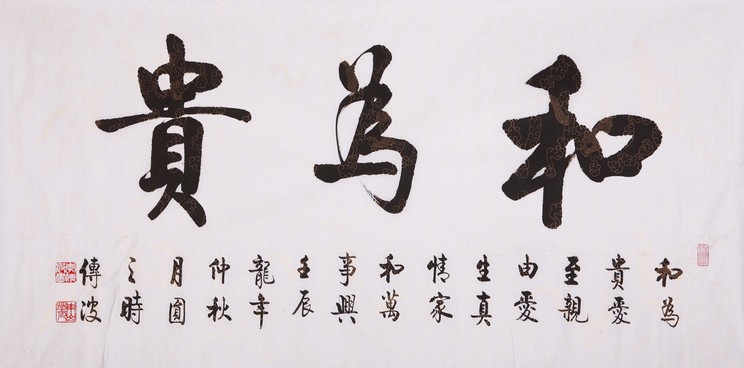 和為貴
和為
貴愛
至親
由愛
生真
情家
和萬
事興
壬辰
龍年
仲秋
月圓
之時
傳波